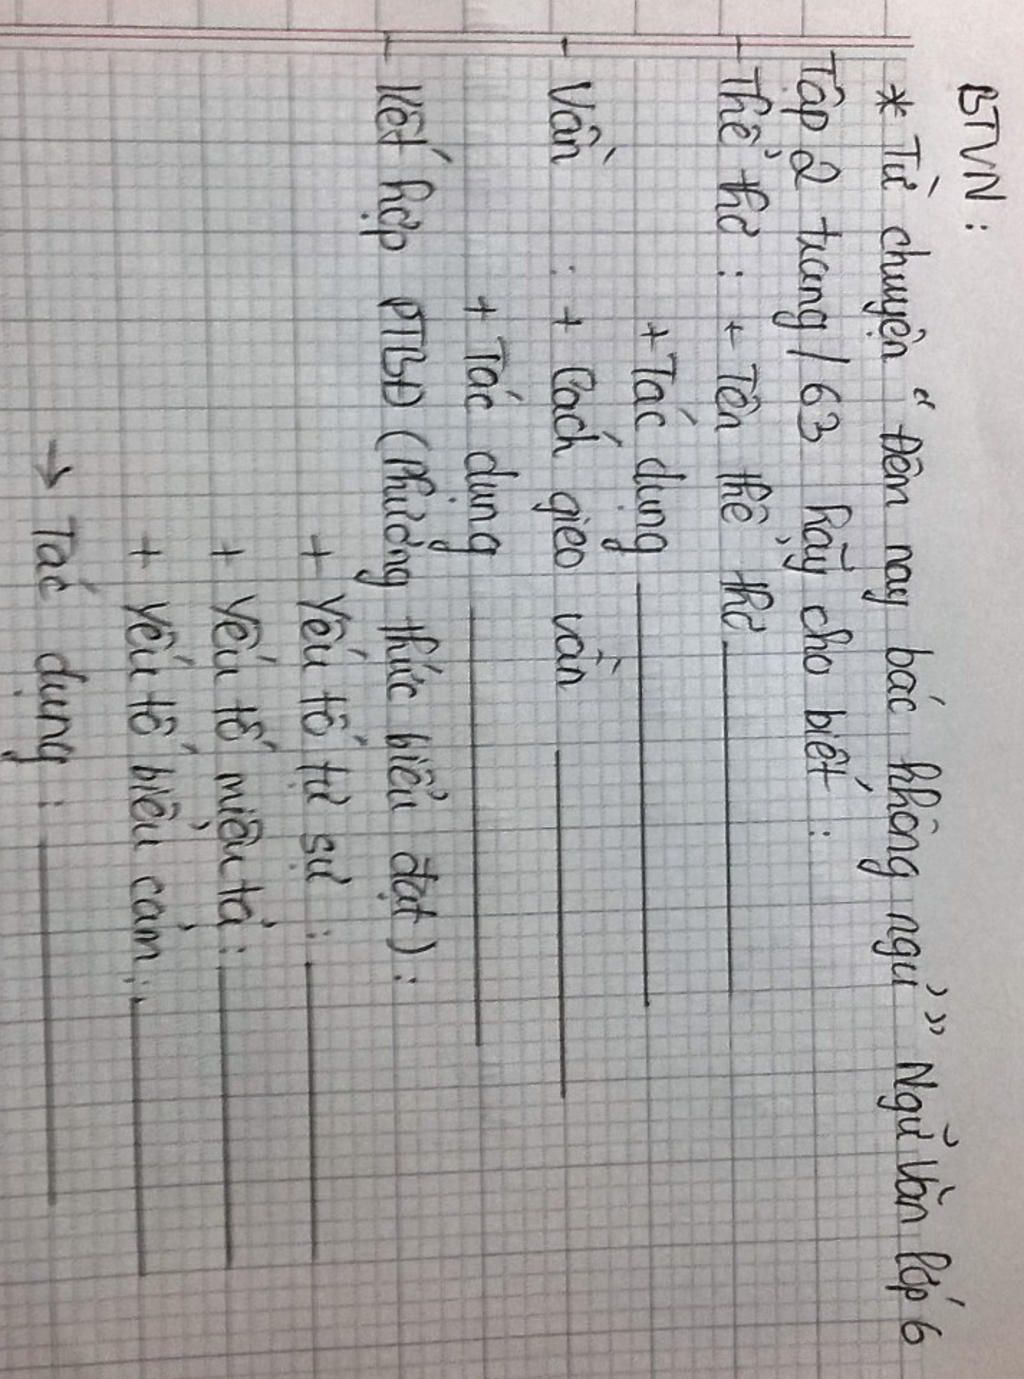 BTVN :
* Từ chuyện " Đêm nay bác không ngủ " Ngữ văn lớp 6
Tập 2 trang / 63 hãy cho biết :
- Thể thơ : + Tên thể thơ
+ Tác dụng
- Vần : + Cách gieo vần
+ Tác dụng
- Kết hợp PTBĐ (Phương thức biểu đạt) :
+ Yếu tố tự sự :
+ Yếu tố miêu tả :
+ Yếu tố biểu cảm :
→ Tác dụng :